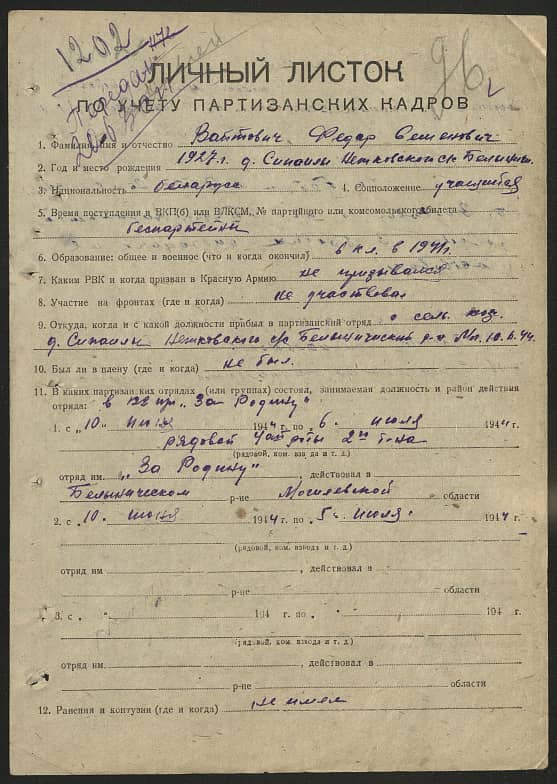 1202
96
ЛИЧНЫЙ ЛИСТОК
ПО УЧЕТУ ПАРТИЗАНСКИХ КАДРОВ
1. Фамилия имя и отчество Вайтович Федар Семенович
2. Год и место рождения 1927 г. д. Сипайлы Нетковский с/с Белынич.
3. Национальность беларусс 4. Соцположение учащийся
5. Время поступления в ВКП(б) или ВЛКСМ, № партийного или комсомольского билета
беспартейны
6. Образование: общее и военное (что и когда окончил) 6 кл. в 1941 г.
7. Каким РВК и когда призван в Красную Армию не призывался
8. Участие на фронтах (где и когда) не участвовал
9. Откуда, когда и с какой должности прибыл в партизанский отряд с сель. хоз.
д. Сипайлы Нетковского с/с Белыничский р-н 10.6.44.
10. Был ли в плену (где и когда) не был.
11. В каких партизанских отрядах (или группах) состоял, занимаемая должность и район действия
отряда: в 122 пр. „За Родину"
1. с „10" июня 1944 г. по „6" июля 1944 г.
рядовой 2й б-на
(рядовой, ком. взвода и т. д.)
отряд им. „За Родину" действовал в
Белыничском р-не Могилевской области
2. с „10" июня 1944 г. по „5" июля 1944 г.
(рядовой, ком. взвода и т. д.)
отряд им. , действовал в
р-не области
3. с „ " 194 г. по „ " 194 г.
(рядовой, ком. взвода и т. д.)
отряд им. , действовал в
р-не области
12. Ранения и контузии (где и когда) не имел